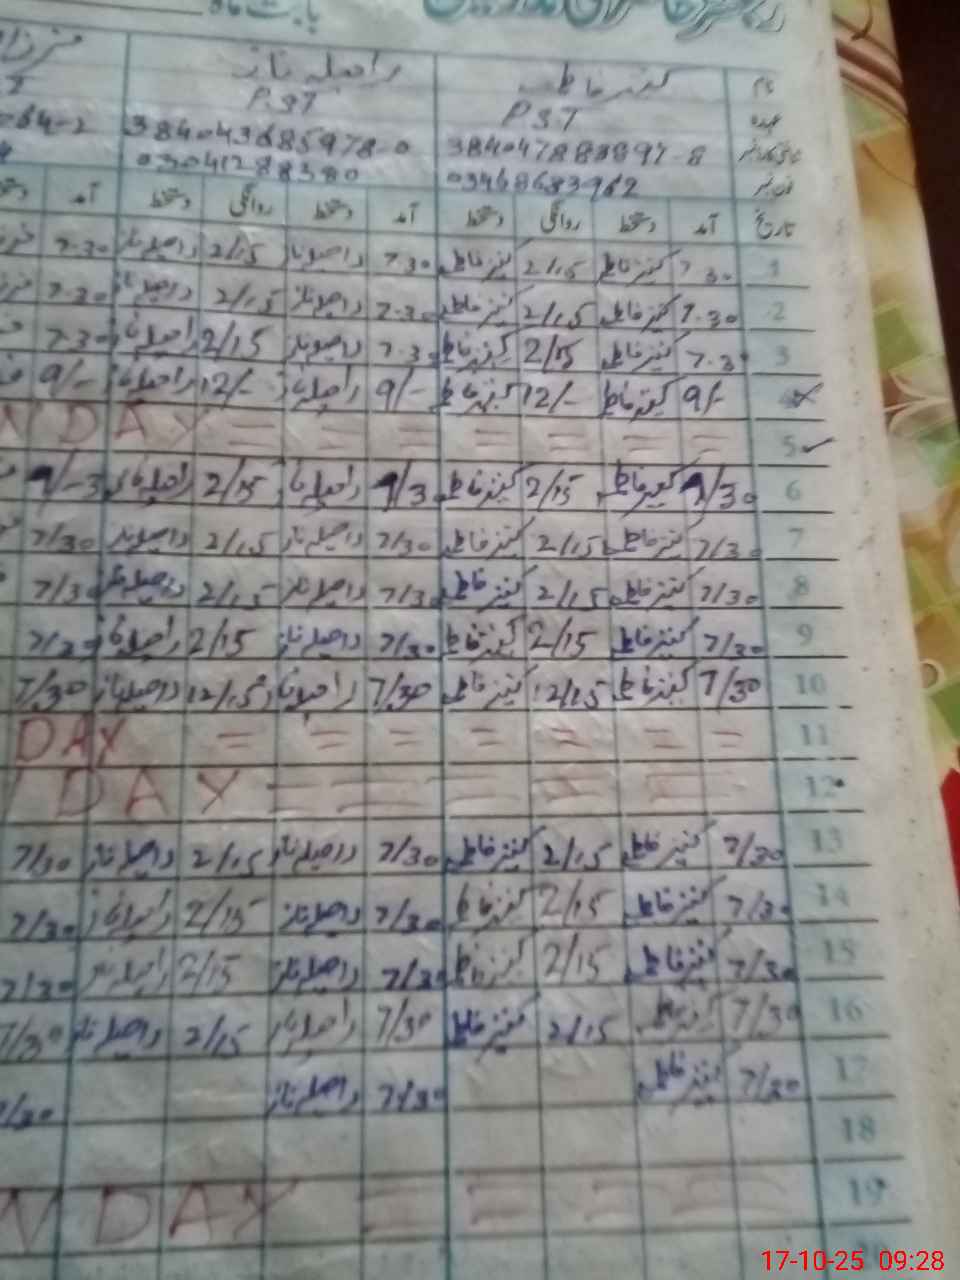 بابت ماہ
نام کنیز فاطمہ راحیلہ ناز
عہدہ PST P.ST
38404788889 -8 384043685978-0
03468683962 03041288380
تاریخ آمد دستخط روانگی دستخط آمد دستخط روانگی دستخط آمد
1 7.30 کنیز فاطمہ 2/15 کنیز فاطمہ 7.30 راحیلہ ناز 2/15 راحیلہ ناز 7.30
2 7.30 کنیز فاطمہ 2/15 کنیز فاطمہ 7.30 راحیلہ ناز 2/15 راحیلہ ناز 7.30
3 7.30 کنیز فاطمہ 2/15 کنیز فاطمہ 7.30 راحیلہ ناز 2/15 راحیلہ ناز 7.30
9/- کنیز فاطمہ 12/- کنیز فاطمہ 9/- راحیلہ ناز 12/- راحیلہ ناز 9/-
5 N D A Y = = = = = = =
6 9/30 کنیز فاطمہ 2/15 کنیز فاطمہ 9/3 راحیلہ ناز 2/15 راحیلہ ناز
7 7/30 کنیز فاطمہ 2/15 کنیز فاطمہ 7/30 راحیلہ ناز 2/15 راحیلہ ناز 7/30
8 7/30 کنیز فاطمہ 2/15 کنیز فاطمہ 7/30 راحیلہ ناز 2/15 راحیلہ ناز 7/30
9 7/30 کنیز فاطمہ 2/15 کنیز فاطمہ 7/30 راحیلہ ناز 2/15 راحیلہ ناز 7/30
10 7/30 کنیز فاطمہ 12/15 کنیز فاطمہ 7/30 راحیلہ ناز 12/15 راحیلہ ناز 7/30
11 DAY = = = = = = =
12 D A Y = = = = =
13 7/30 کنیز فاطمہ 2/15 کنیز فاطمہ 7/30 راحیلہ ناز 2/15 راحیلہ ناز 7/30
14 7/30 کنیز فاطمہ 2/15 کنیز فاطمہ 7/30 راحیلہ ناز 2/15 راحیلہ ناز 7/30
15 7/30 کنیز فاطمہ 2/15 کنیز فاطمہ 7/30 راحیلہ ناز 2/15 راحیلہ ناز 7/30
16 7/30 کنیز فاطمہ 2/15 کنیز فاطمہ 7/30 راحیلہ ناز 2/15 راحیلہ ناز 7/30
17 7/30 کنیز فاطمہ 7/30 راحیلہ ناز 7/30
18
19 N D A Y = = = =
17-10-25 09:28